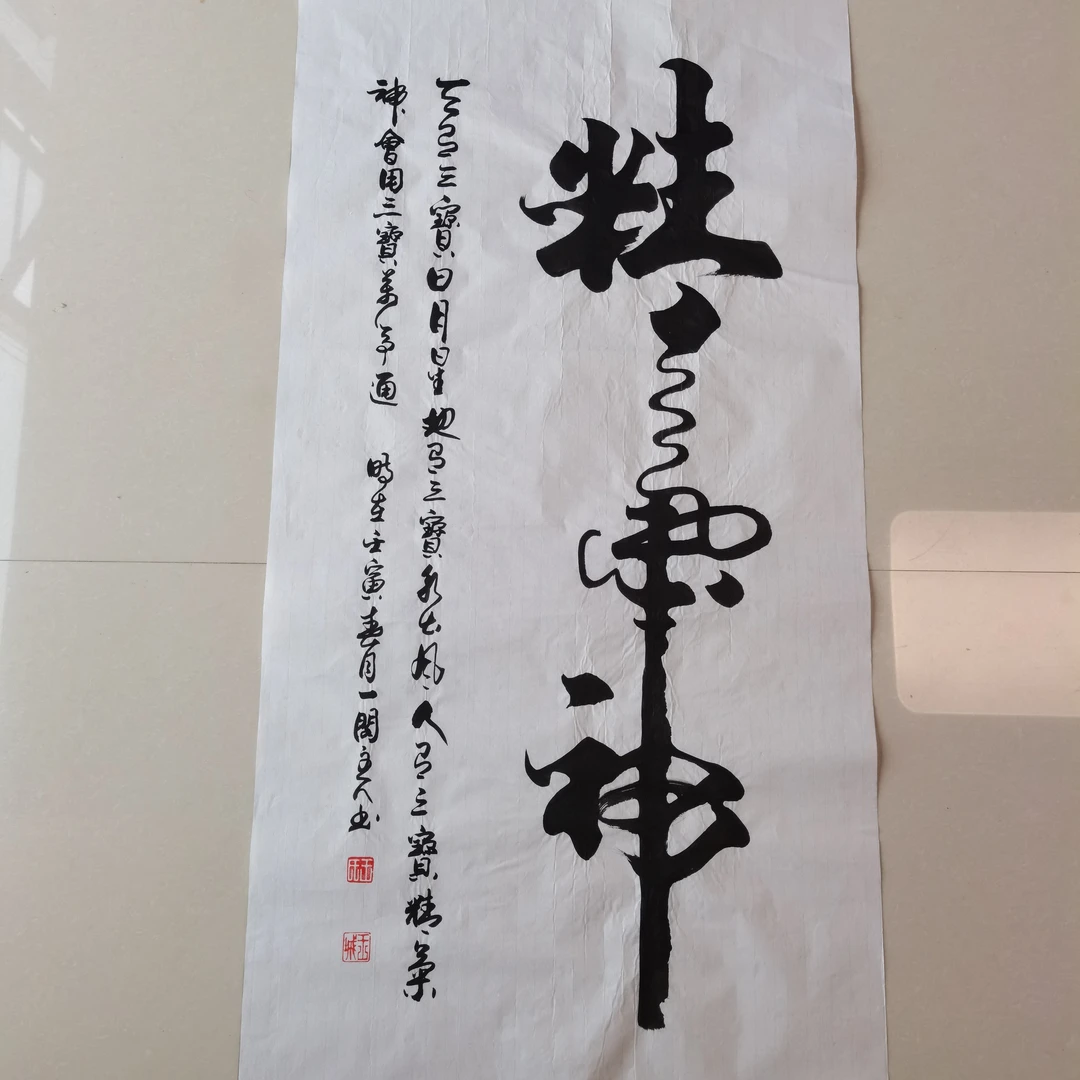 精氣神
天有三寶日月星地有三寶水火風人有三寶精氣
神會用三寶萬事通 時在壬寅春月一主人書